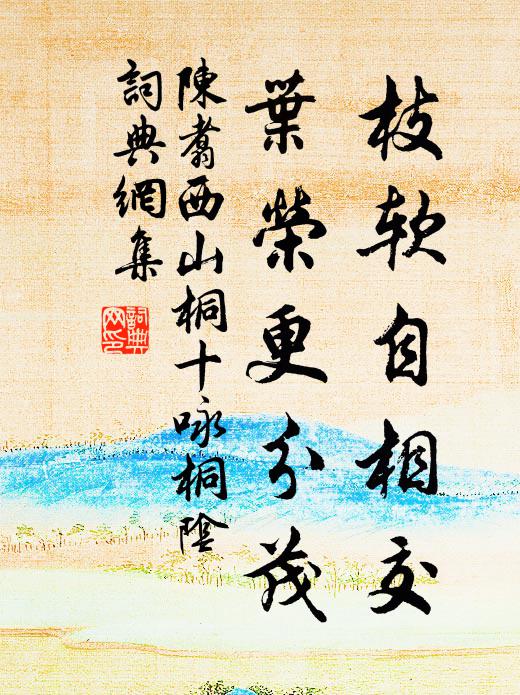 枝软自相交
葉榮更分茂
陳翥西山桐十咏桐陰
詞典網集
詞典网印